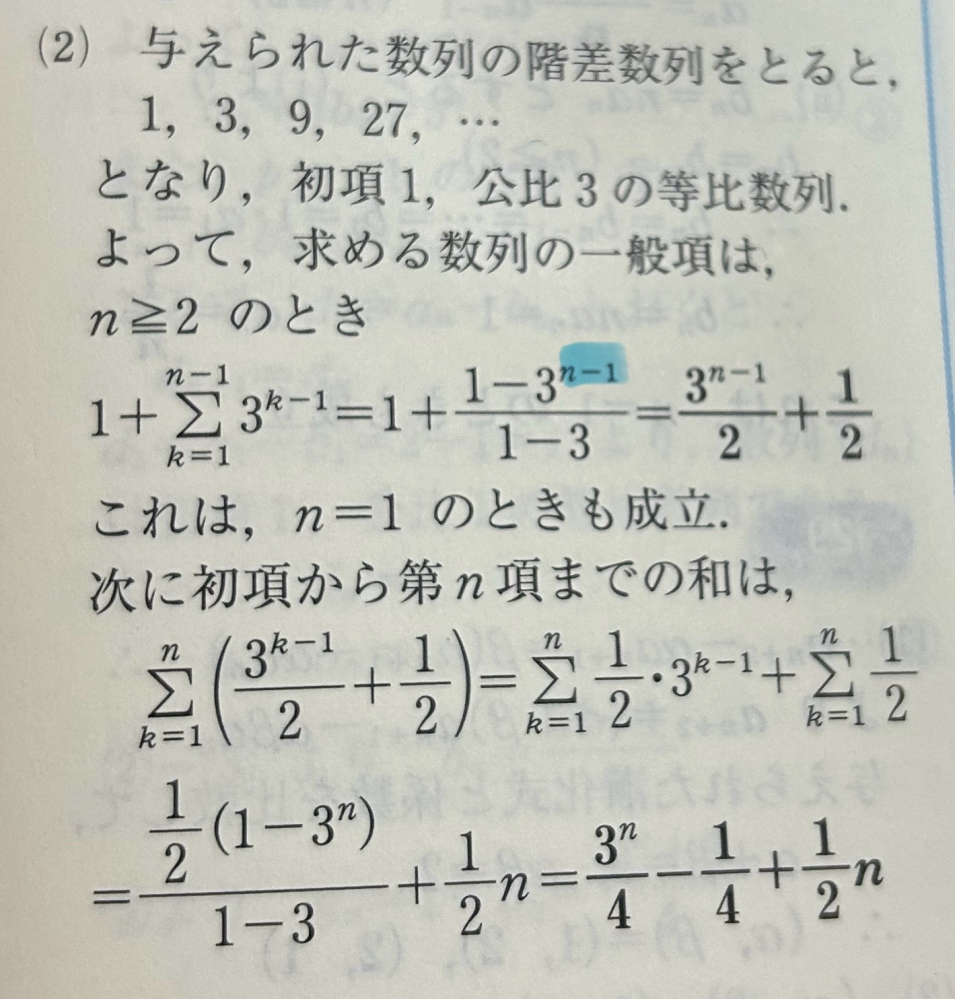 (2) 与えられた数列の階差数列をとると,
1, 3, 9, 27, …
となり, 初項 1, 公比 3 の等比数列.
よって, 求める数列の一般項は,
n≧2 のとき
1+∑_{k=1}^{n-1} 3^{k-1}=1+\frac{1-3^{n-1}}{1-3}=\frac{3^{n-1}}{2}+\frac{1}{2}
これは, n=1 のときも成立.
次に初項から第 n 項までの和は,
∑_{k=1}^{n} (\frac{3^{k-1}}{2}+\frac{1}{2})=∑_{k=1}^{n} \frac{1}{2}・3^{k-1}+∑_{k=1}^{n} \frac{1}{2}
=\frac{\frac{1}{2}(1-3^n)}{1-3}+\frac{1}{2}n=\frac{3^n}{4}-\frac{1}{4}+\frac{1}{2}n